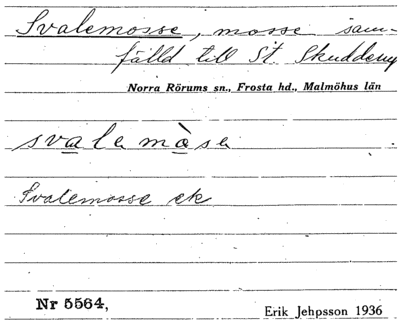 Svalemosse, mosse sam-
fälld till St. Skuddeny
Norra Rörums sn., Frosta hd., Malmöhus län
svalemòse
Svalemosse ek
Nr 5564,
Erik Jehpsson 1936